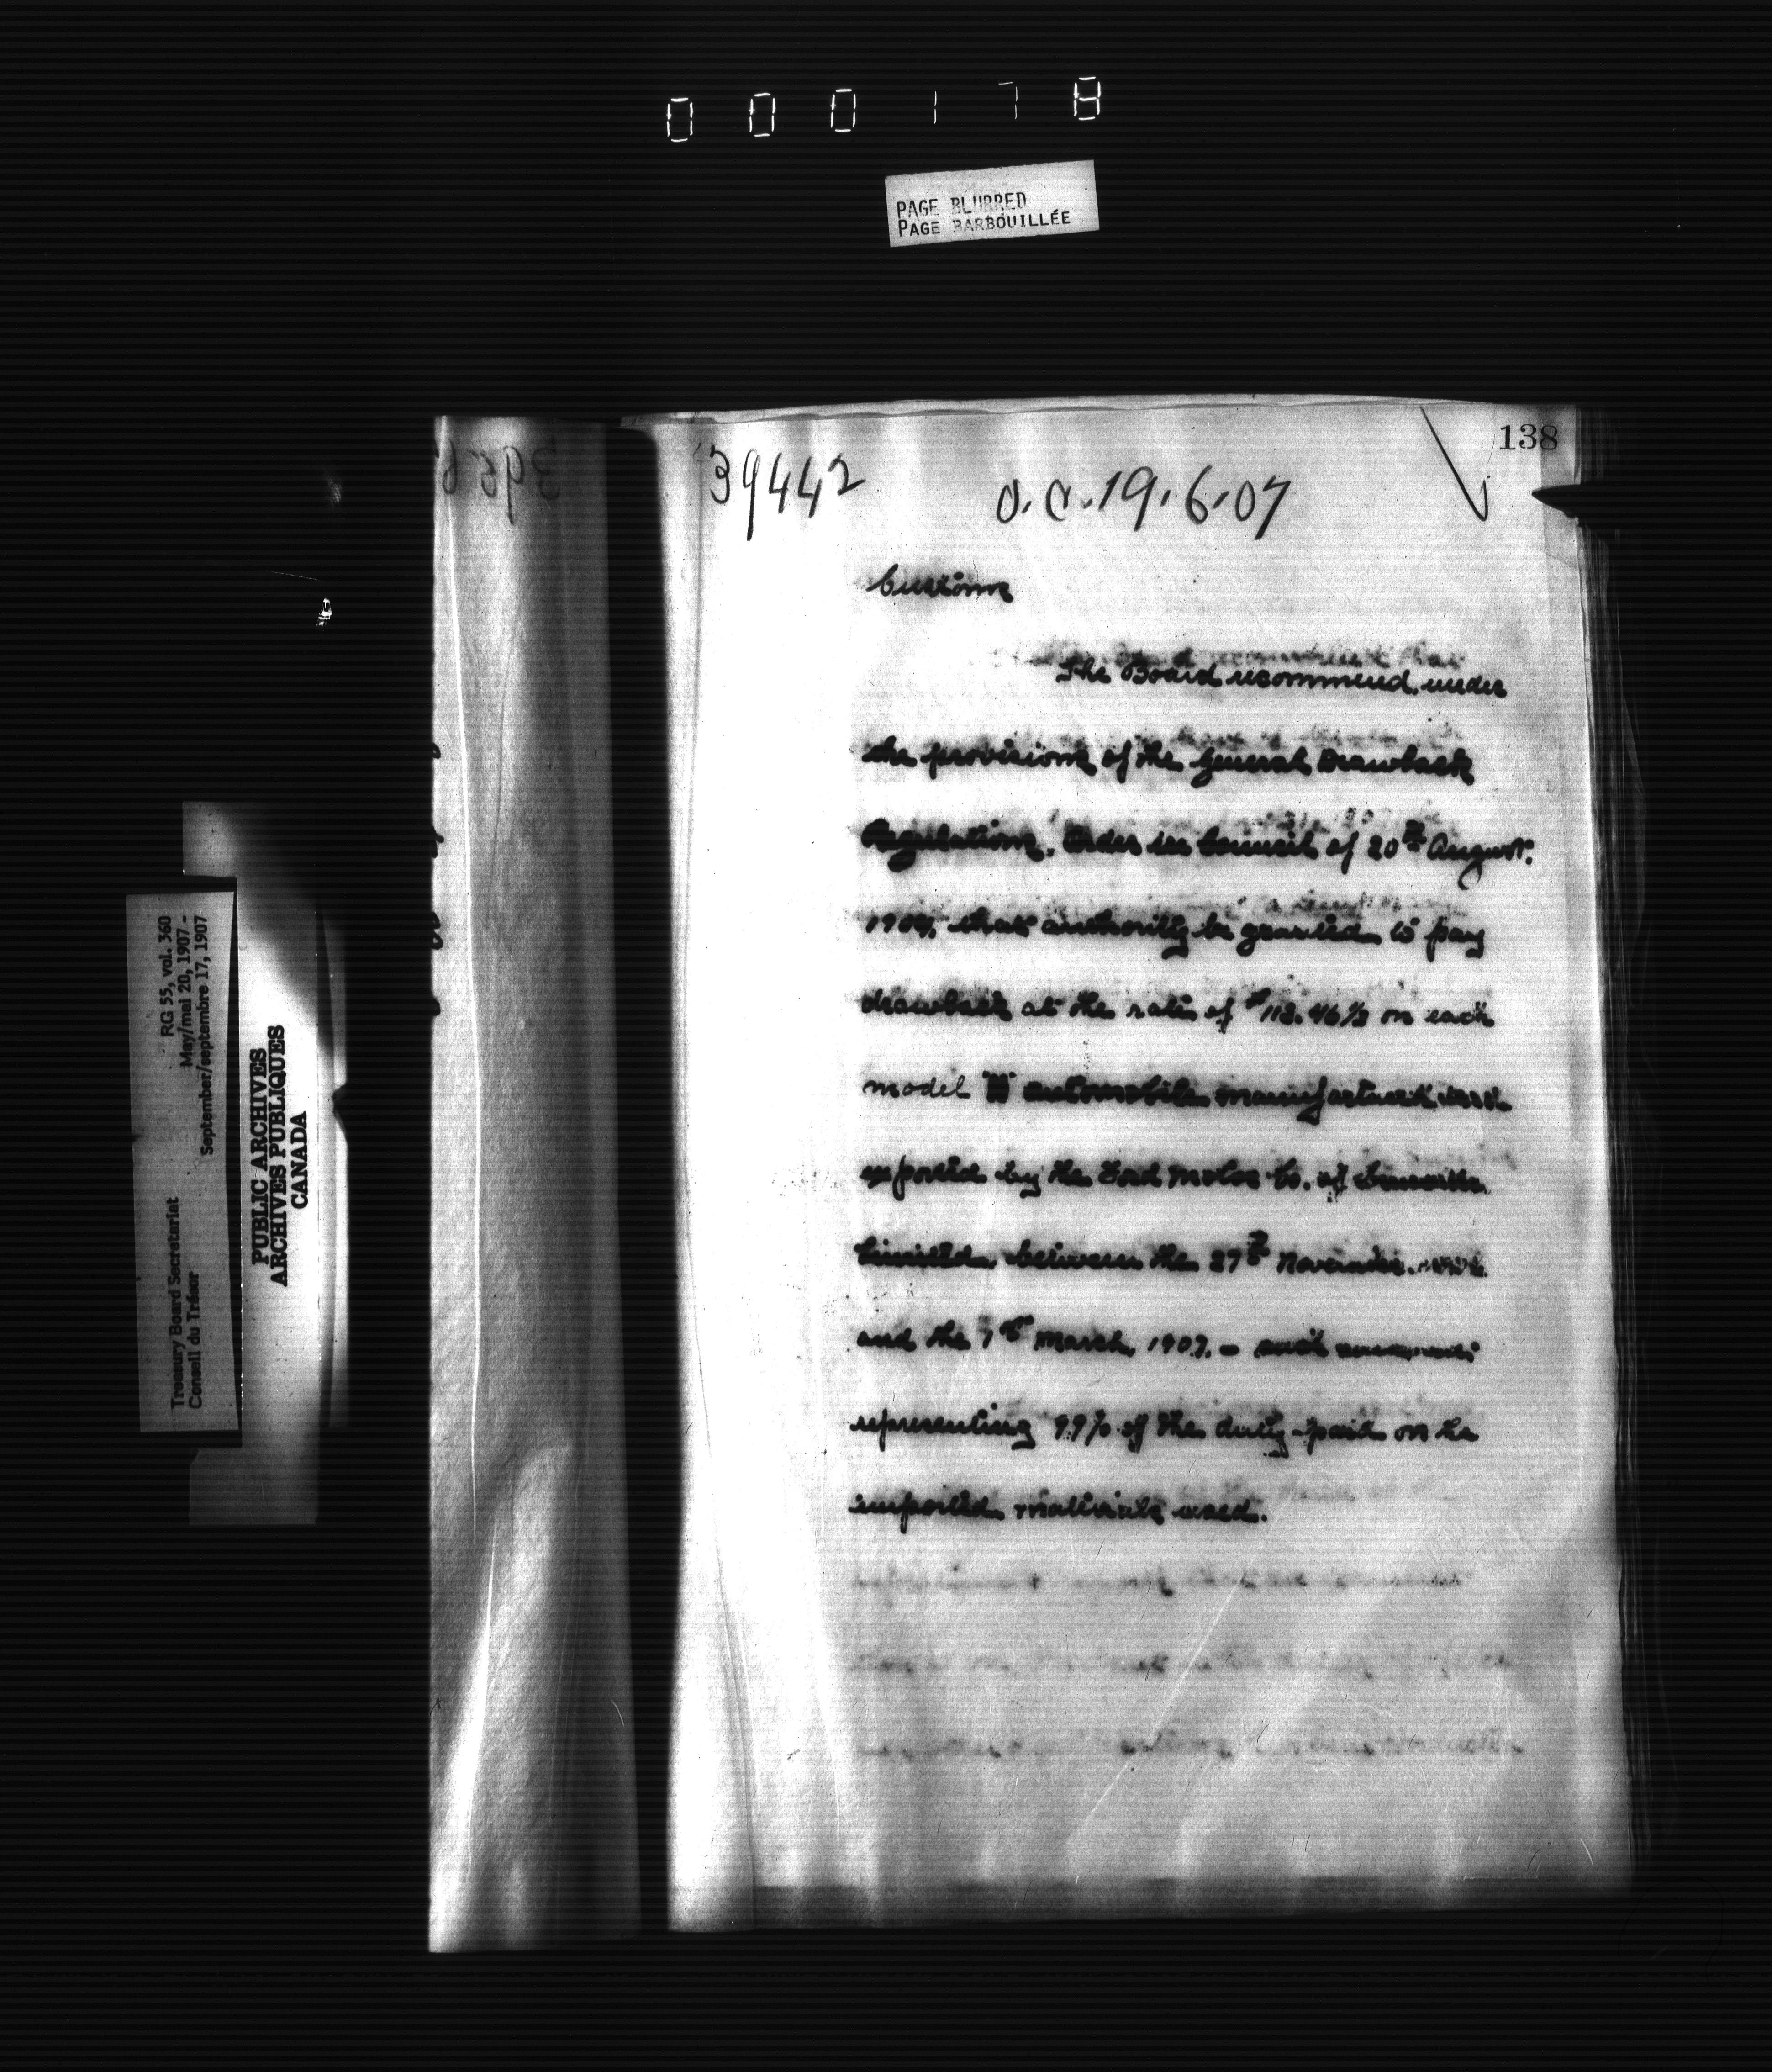 000178
PAGE BLURRED
PAGE BARBOUILLÉE
138
39442
O.C. 19.6.07
Customs
The Board recommend, under
the provisions of the General Drawback
Regulations, Order in Council of 20th August,
1904, that authority be granted to pay
drawback at the rate of $113.46½ on each
model automobile manufactured and
exported by the Ford Motor Co. of Canada
Limited, between the 27th November,
and the 7th March, 1907, - such
representing 99% of the duty paid on the
imported materials used.
RG 55, vol. 360
May/mai 20, 1907 -
September/septembre 17, 1907
Treasury Board Secretariat
Conseil du Trésor
PUBLIC ARCHIVES
ARCHIVES PUBLIQUES
CANADA